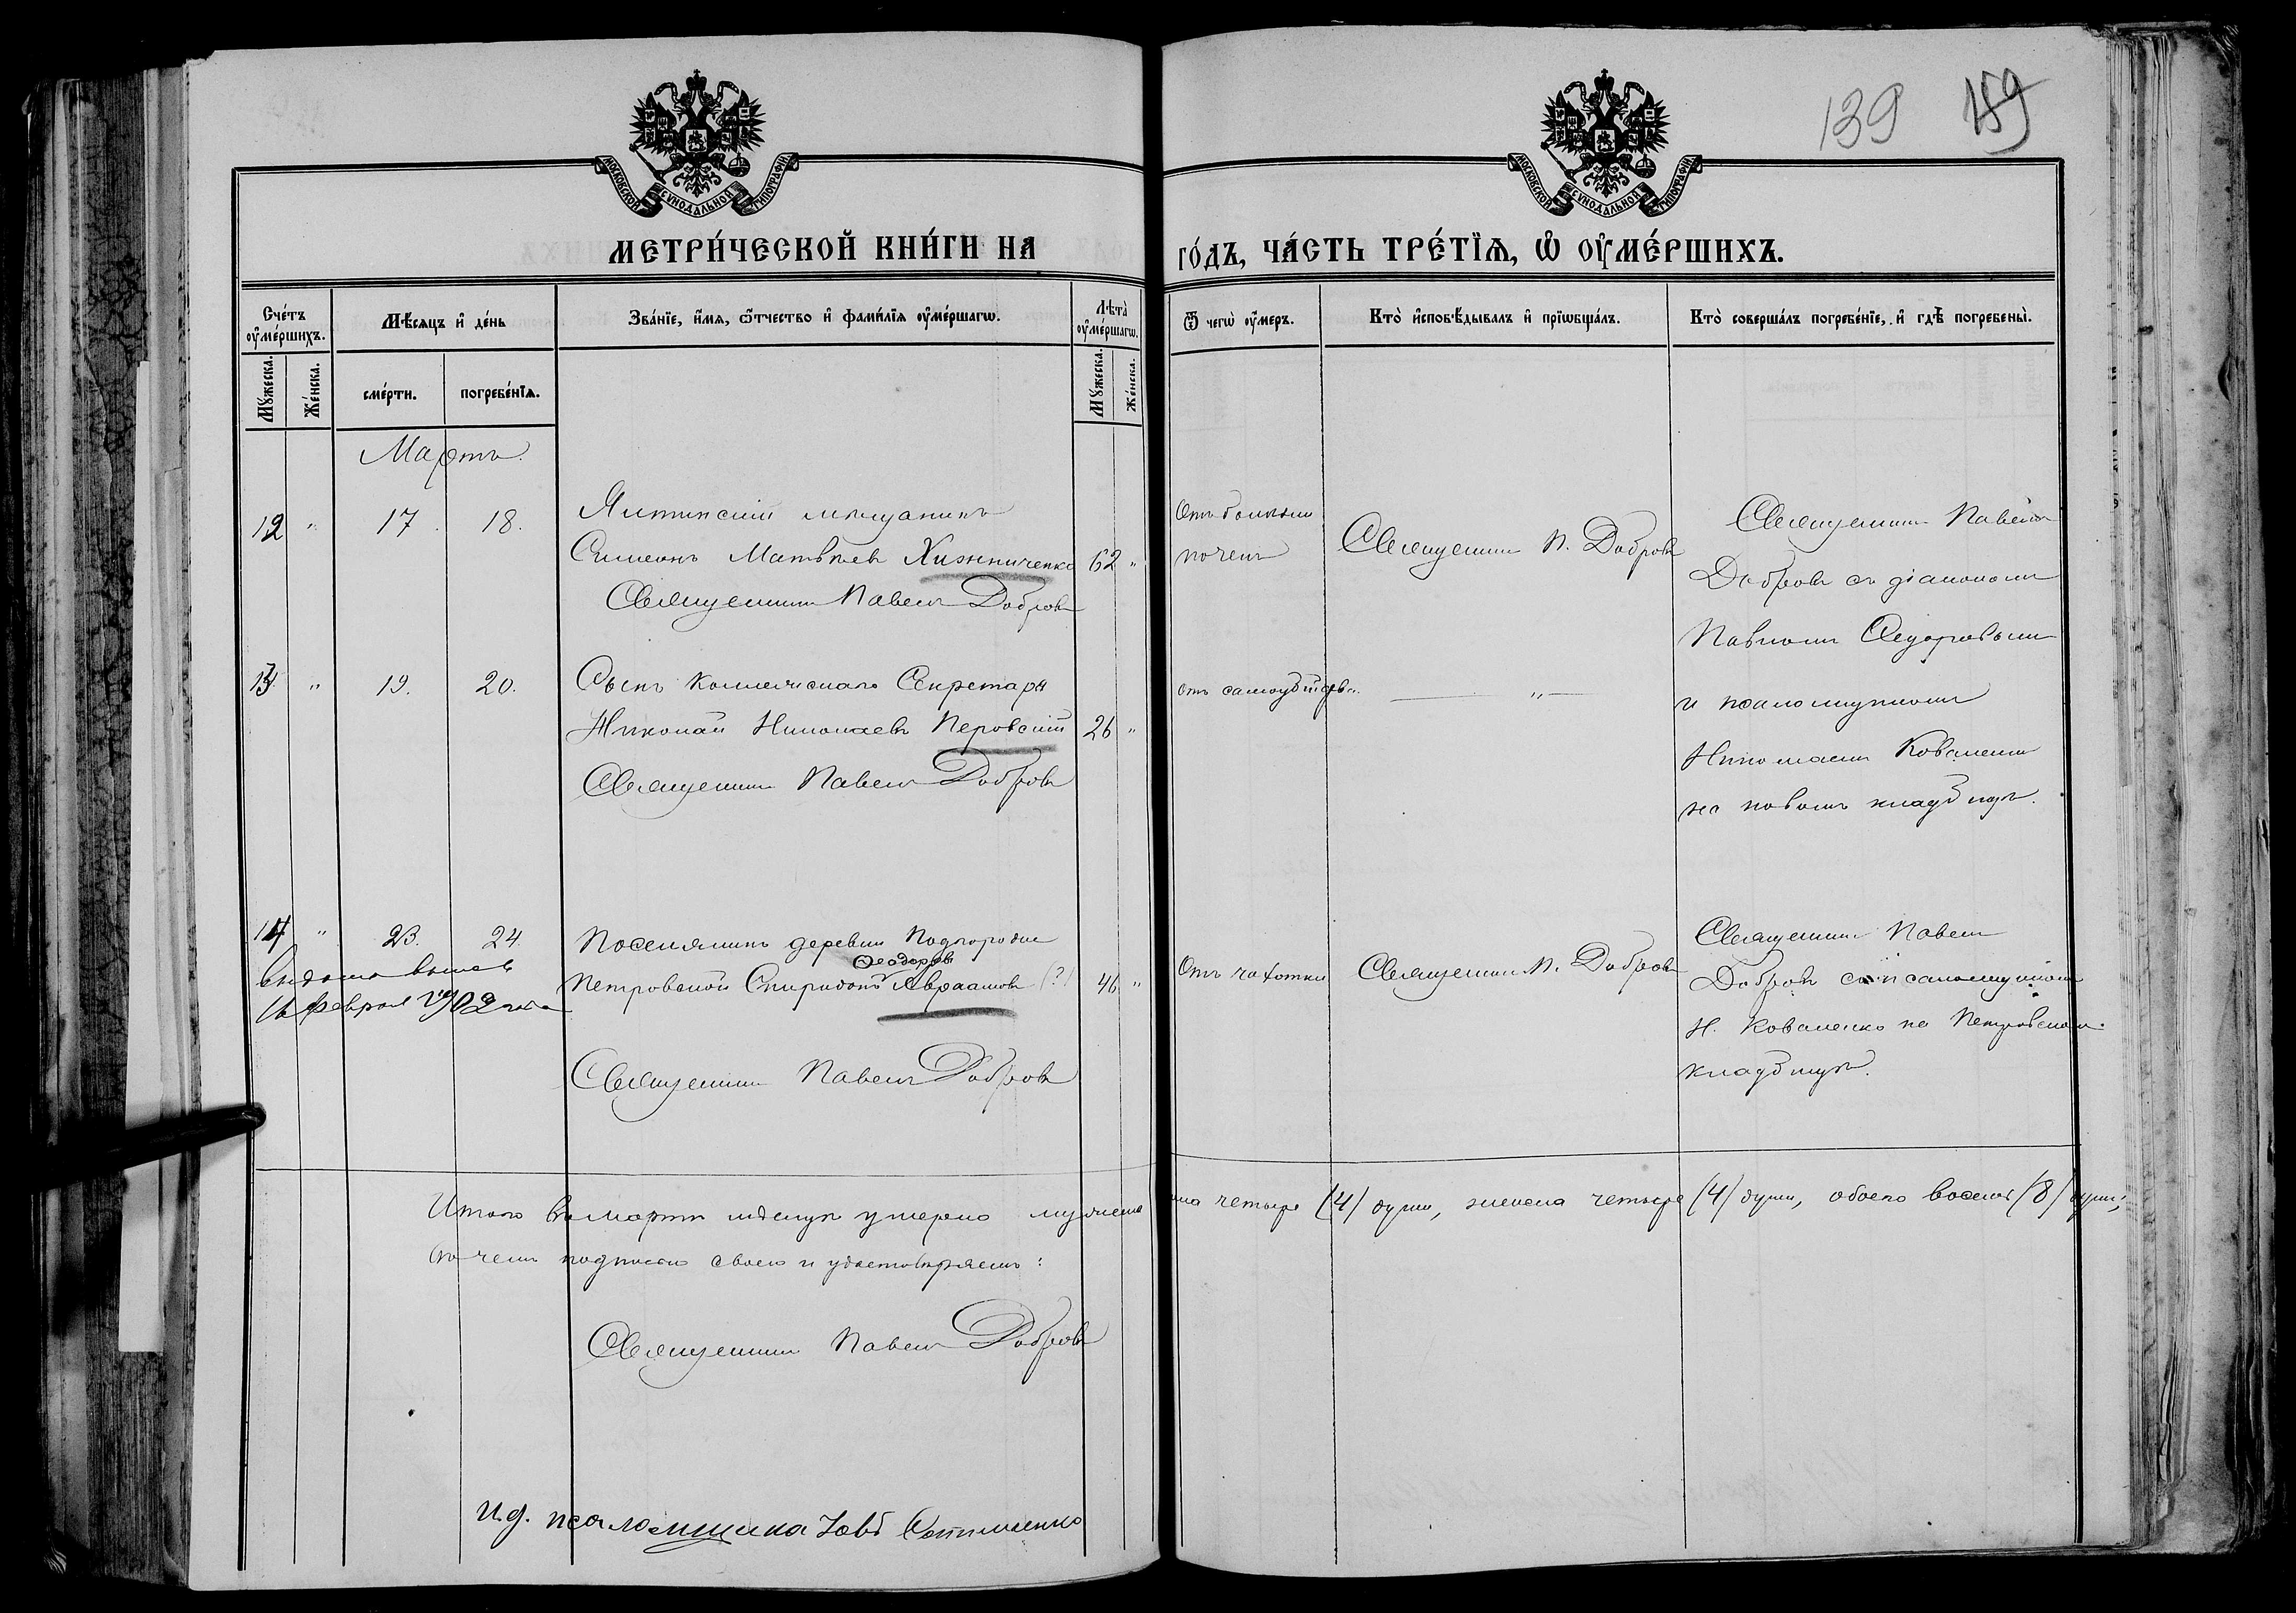 139 159
МОСКОВСКОЙ СѴНОДАЛЬНОЙ ТИПОГРАФІИ
МОСКОВСКОЙ СѴНОДАЛЬНОЙ ТИПОГРАФІИ
МЕТРИ́ЧЕСКОЙ КНИ́ГИ НА ГО́ДЪ, ЧА́СТЬ ТРЕ́ТЇѦ, Ѽ ОУ҆МЕ́РШИХЪ.
Сче́тъ оу҆ме́ршихъ.
Мꙋ́жеска.
Же́нска.
Мѣ́сѧцъ и҆ де́нь
сме́рти.
погребе́нїѧ.
Зва́нїе, и҆́мѧ, ѻ҆́тчество и҆ фами́лїѧ оу҆ме́ршагѡ.
Лѣ́та оу҆ме́ршагѡ.
Мꙋ́жеска.
Же́нска.
Ѿ чегѡ̀ оу҆́меръ.
Кто̀ и҆сповѣ́дывалъ и҆ прїѡбща́лъ.
Кто̀ соверша́лъ погребе́нїе, и҆ гдѣ̀ погребены̀.
Мартъ.
12 " 17. 18. Ялтинскій мѣщанинъ
Симеонъ Матвѣевъ Хижниченко 62 "
Священникъ Павелъ Добровъ
Отъ болѣзни
почекъ
Священникъ П. Добровъ
Священникъ Павелъ
Добровъ съ діакономъ
Павломъ
и псаломщикомъ
Николаемъ Коваленко
на новомъ кладбищѣ.
13 " 19. 20. Сынъ Коллежскаго Секретаря
Николай Николаевъ Перовскій 26 "
Священникъ Павелъ Добровъ
отъ самоубійства. — " —
14 " 23. 24. Поселянинъ деревни
Ѳеодоровъ
Петровской Спиридонъ Авраамовъ (?) 46 "
16 Февраля 1902 года
Священникъ Павелъ Добровъ
Отъ чахотки
Священникъ П. Добровъ
Священникъ Павелъ
Добровъ съ псаломщикомъ
Н. Коваленко на Петровскомъ
кладбищѣ.
Итого въ Мартѣ мѣсяцѣ умерло мужеска пола четыре (4) души, женска четыре (4) души, обоего восемь (8) душъ;
въ чемъ подписью своею и удостовѣряемъ:
Священникъ Павелъ Добровъ
И.д. псаломщика Іовъ